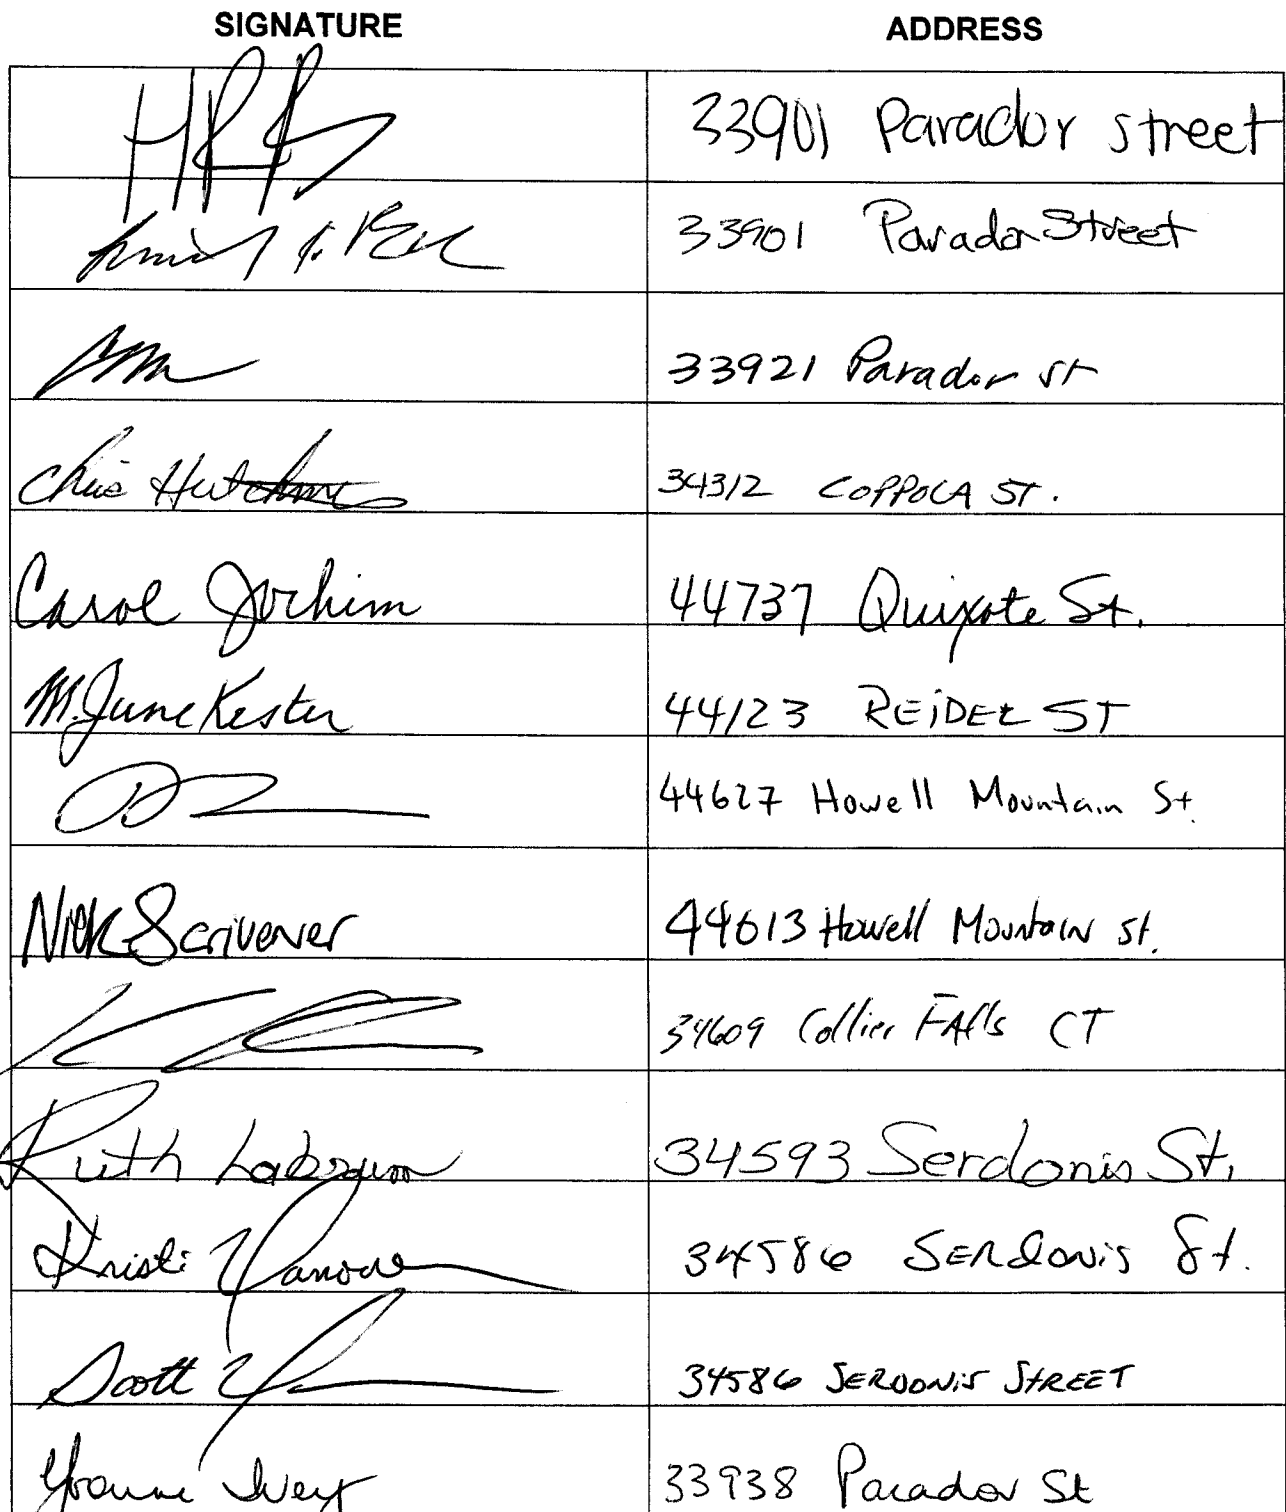 SIGNATURE ADDRESS
33901 Parador street
33901 Parador Street
33921 Parador st
Chris Hutchins 34312 COPPOLA ST.
Carol Jochim 44737 Quixote St.
M. June Kester 44123 REiDEL ST
44627 Howell Mountain St.
Nick Scrivener 44613 Howell Mountain st.
34609 Collier FAlls CT
Ruth 34593 Serdonis St.
Kristi Vanover 34586 SERdonis St.
Scott 34586 SERDONiS StREET
Yvonne Ivey 33938 Parador St